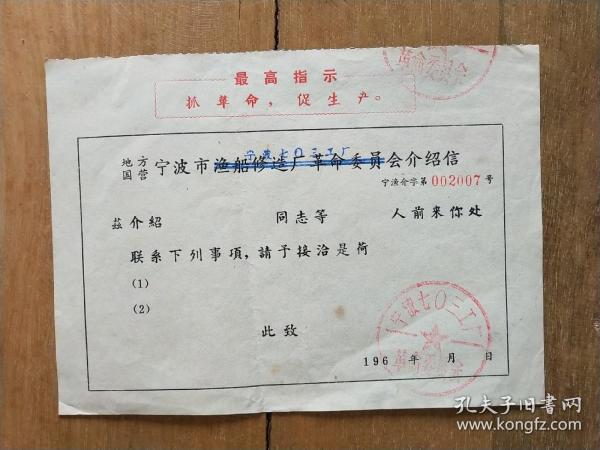 革命委员会
最高指示
抓革命，促生产。
宁波七〇三工厂
地方国营 宁波市渔船修造厂革命委员会介绍信
宁渔介字第002007号
茲介紹 同志等 人前来你处
联系下列事項，請予接洽是荷
(1)
(2)
此致
宁波七〇三工厂
革命委员会
196 年 月 日
孔夫子旧书网
www.kongfz.com